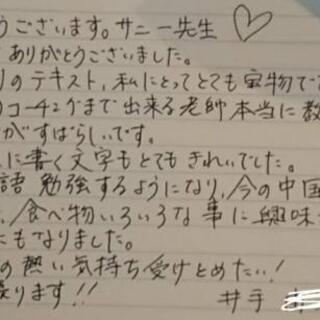 うございます。サニー先生♡
ありがとうございました。
りのテキスト、私にとってとても宝物で
コーチングまで出来る老師本当に教
がすばらしいです。
に書く文字もとてもきれいでした。
語 勉強するようになり、今の中国
、食べ物いろいろな事に興味
にもなりました。
の熱い気持ち受けとめたい!
ります!!
井手